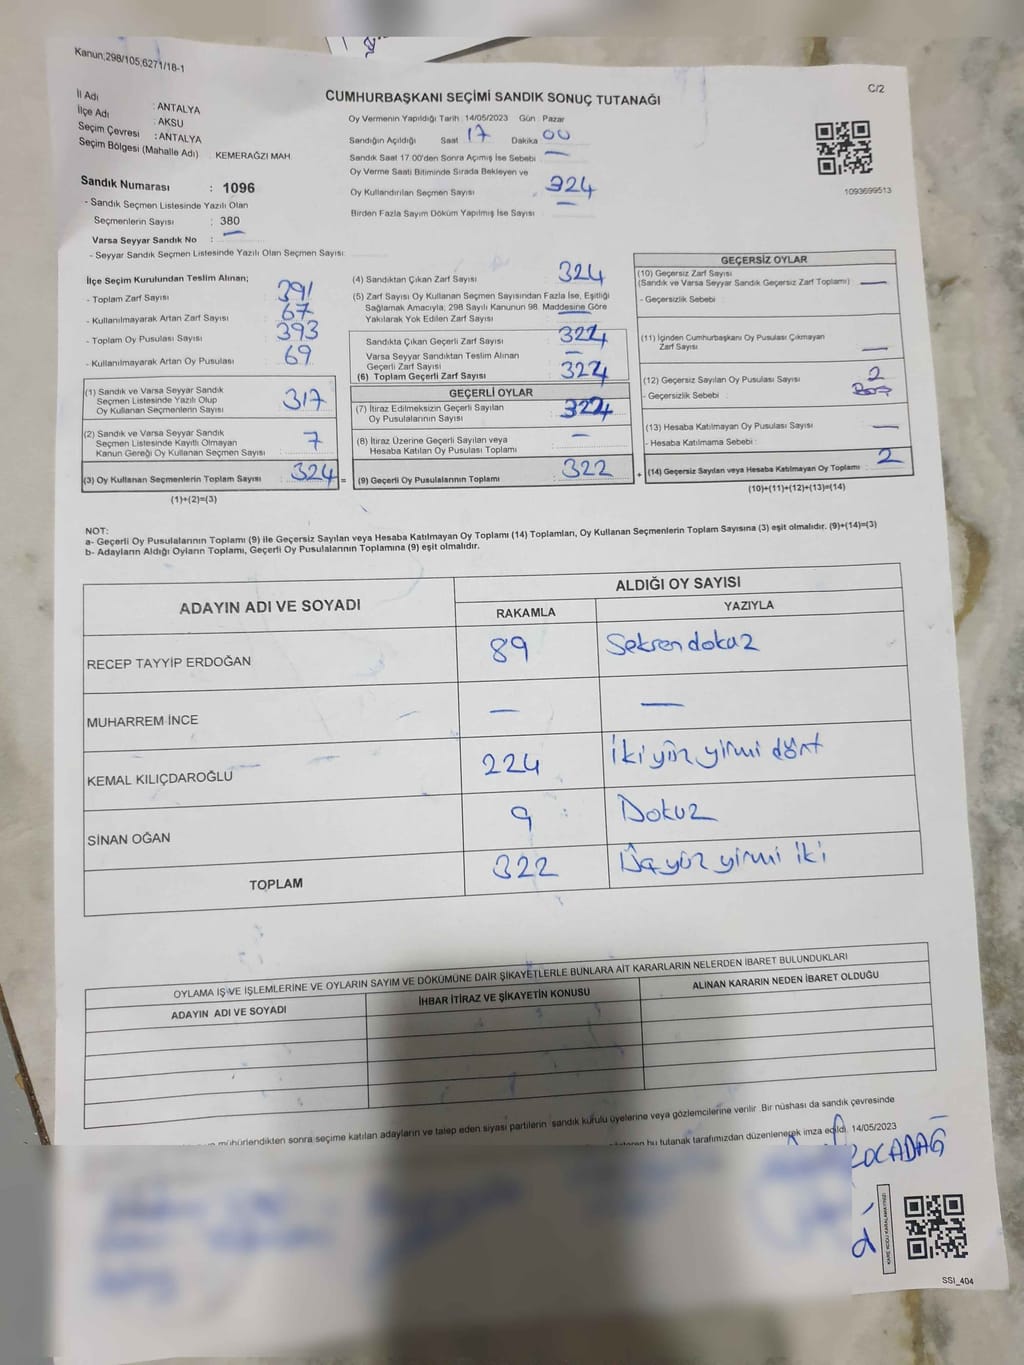 Kanun;298/105;6271/18-1
C/2
CUMHURBAŞKANI SEÇİMİ SANDIK SONUÇ TUTANAĞI
İl Adı : ANTALYA
İlçe Adı : AKSU
Seçim Çevresi : ANTALYA
Seçim Bölgesi (Mahalle Adı) : KEMERAĞZI MAH.
Sandık Numarası : 1096
- Sandık Seçmen Listesinde Yazılı Olan
Seçmenlerin Sayısı : 380
Varsa Seyyar Sandık No : —
- Seyyar Sandık Seçmen Listesinde Yazılı Olan Seçmen Sayısı:
Oy Vermenin Yapıldığı Tarih :14/05/2023 Gün : Pazar
Sandığın Açıldığı Saat 17 Dakika 00
Sandık Saat 17.00'den Sonra Açılmış İse Sebebi —
Oy Verme Saati Bitiminde Sırada Bekleyen ve
Oy Kullandırılan Seçmen Sayısı 324
Birden Fazla Sayım Döküm Yapılmış İse Sayısı —
1093699513
İlçe Seçim Kurulundan Teslim Alınan;
- Toplam Zarf Sayısı 391
- Kullanılmayarak Artan Zarf Sayısı 67
- Toplam Oy Pusulası Sayısı 393
- Kullanılmayarak Artan Oy Pusulası 69
(1) Sandık ve Varsa Seyyar Sandık
Seçmen Listesinde Yazılı Olup
Oy Kullanan Seçmenlerin Sayısı 317
(2) Sandık ve Varsa Seyyar Sandık
Seçmen Listesinde Kayıtlı Olmayan
Kanun Gereği Oy Kullanan Seçmen Sayısı 7
(3) Oy Kullanan Seçmenlerin Toplam Sayısı 324 =
(1)+(2)=(3)
(4) Sandıktan Çıkan Zarf Sayısı 324
(5) Zarf Sayısı Oy Kullanan Seçmen Sayısından Fazla İse, Eşitliği
Sağlamak Amacıyla; 298 Sayılı Kanunun 98. Maddesine Göre
Yakılarak Yok Edilen Zarf Sayısı —
Sandıkta Çıkan Geçerli Zarf Sayısı 324
Varsa Seyyar Sandıktan Teslim Alınan
Geçerli Zarf Sayısı —
(6) Toplam Geçerli Zarf Sayısı 324
GEÇERLİ OYLAR
(7) İtiraz Edilmeksizin Geçerli Sayılan
Oy Pusulasının Sayısı 322
(8) İtiraz Üzerine Geçerli Sayılan veya
Hesaba Katılan Oy Pusulası Toplamı —
(9) Geçerli Oy Pusulalarının Toplamı 322 +
GEÇERSİZ OYLAR
(10) Geçersiz Zarf Sayısı
(Sandık ve Varsa Seyyar Sandık Geçersiz Zarf Toplamı) —
- Geçersizlik Sebebi :
(11) İçinden Cumhurbaşkanı Oy Pusulası Çıkmayan
Zarf Sayısı —
(12) Geçersiz Sayılan Oy Pusulası Sayısı 2
- Geçersizlik Sebebi : Boş
(13) Hesaba Katılmayan Oy Pusulası Sayısı —
- Hesaba Katılmama Sebebi :
(14) Geçersiz Sayılan veya Hesaba Katılmayan Oy Toplamı 2
(10)+(11)+(12)+(13)=(14)
NOT:
a- Geçerli Oy Pusulalarının Toplamı (9) ile Geçersiz Sayılan veya Hesaba Katılmayan Oy Toplamı (14) Toplamları, Oy Kullanan Seçmenlerin Toplam Sayısına (3) eşit olmalıdır. (9)+(14)=(3)
b- Adayların Aldığı Oyların Toplamı, Geçerli Oy Pusulalarının Toplamına (9) eşit olmalıdır.
ADAYIN ADI VE SOYADI ALDIĞI OY SAYISI
RAKAMLA YAZIYLA
RECEP TAYYİP ERDOĞAN 89 Seksen dokuz
MUHARREM İNCE — —
KEMAL KILIÇDAROĞLU 224 İki yüz yirmi dört
SİNAN OĞAN 9 Dokuz
TOPLAM 322 Üçyüz yirmi iki
OYLAMA İŞ VE İŞLEMLERİNE VE OYLARIN SAYIM VE DÖKÜMÜNE DAİR ŞİKAYETLERLE BUNLARA AİT KARARLARIN NELERDEN İBARET BULUNDUKLARI
ADAYIN ADI VE SOYADI İHBAR İTİRAZ VE ŞİKAYETİN KONUSU ALINAN KARARIN NEDEN İBARET OLDUĞU
mühürlendikten sonra seçime katılan adayların ve talep eden siyasi partilerin sandık kurulu üyelerine veya gözlemcilerine verilir. Bir nüshası da sandık çevresinde
bu tutanak tarafımızdan düzenlenerek imza edildi. 14/05/2023
KOCADAĞ
SSI_404